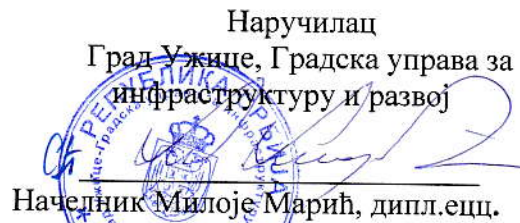 Наручилац
Град Ужице, Градска управа за
инфраструктуру и развој
РЕПУБЛИКА СРБИЈА
Начелник Милоје Марић, дипл.ецц.